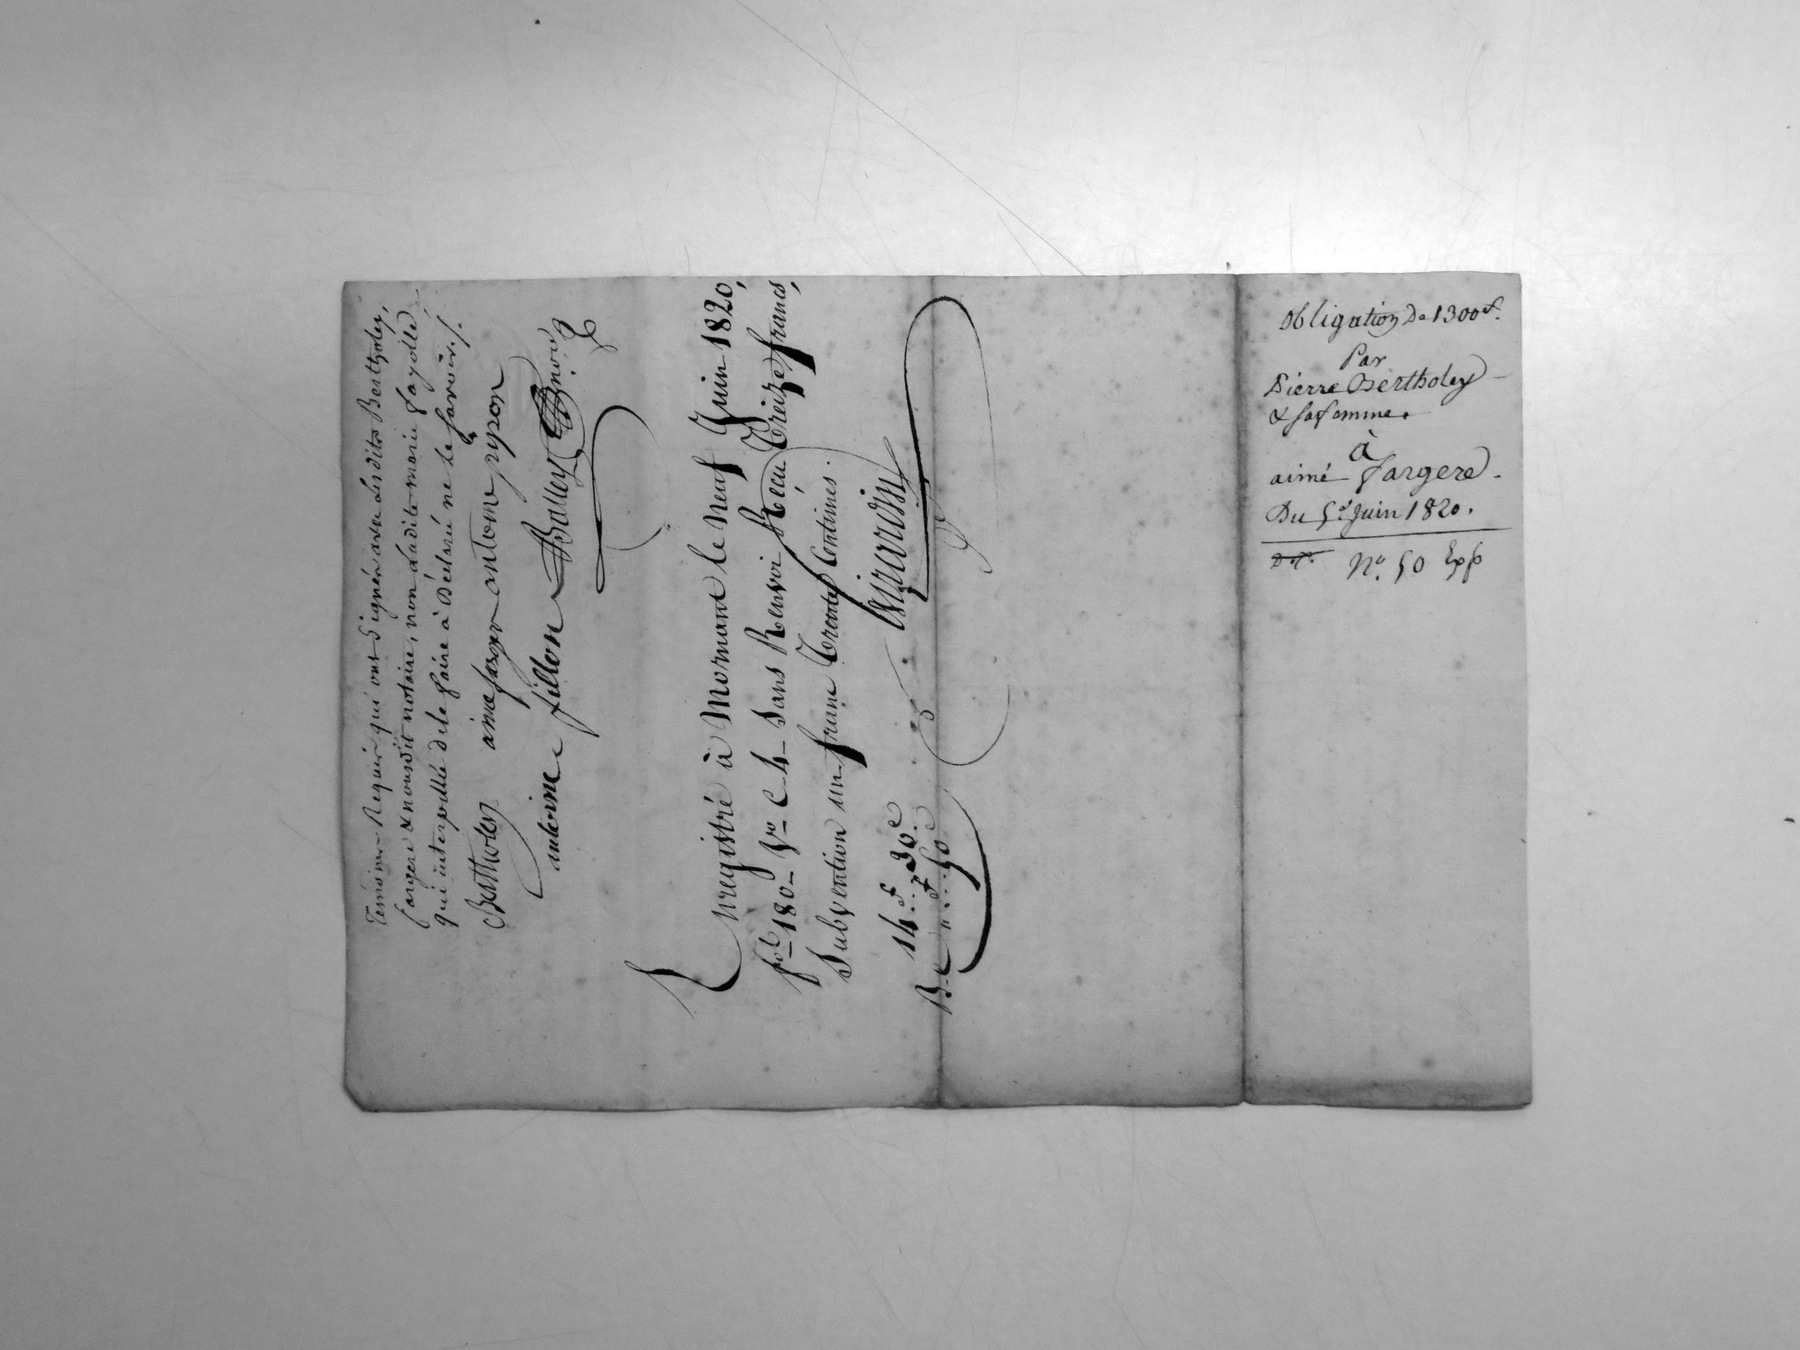 témoins Requis qui ont Signés avec lesdits Bertholey,
fargere & nousdit notaire, non ladite marie fayolle
qui interpellée de le faire à Déclaré ne le savoir./.
Bertholey aimé fargere antoine pipon
antoine fillon Balley
Enregistré à Mornant le neuf Juin 1820,
fol. 180 Vo C. 4. Sans Renvoi Reçu Treize francs,
Subvention un franc Trente Centimes.
14f..30c
Girardin
B. C "....50c
Obligation De 1300f.
Par
Pierre Bertholey
& sa femme.
à
aimé Fargere.
Du 5 Juin 1820.
No. 50 Exp